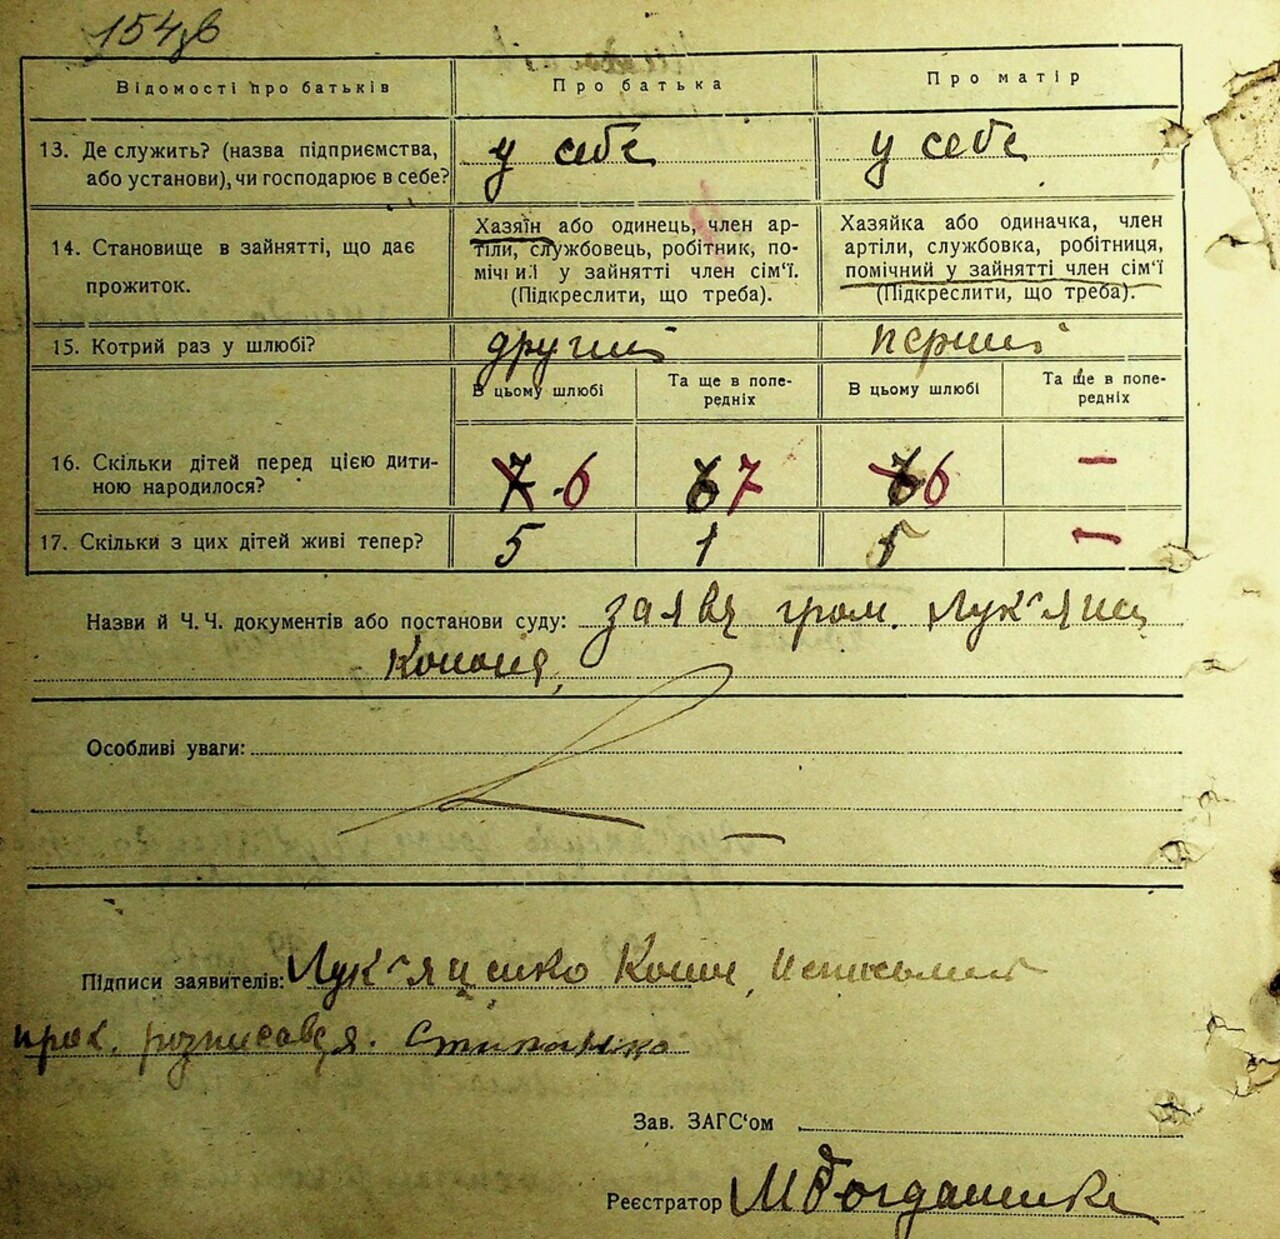 154зв
Відомості про батьків
Про батька
Про матір
13. Де служить? (назва підприємства,
або установи), чи господарює в себе?
у себе
у себе
14. Становище в зайнятті, що дає
прожиток.
Хазяїн або одинець, член ар-
тіли, службовець, робітник, по-
мічний у зайнятті член сім'ї.
(Підкреслити, що треба).
Хазяйка або одиначка, член
артіли, службовка, робітниця,
помічний у зайнятті член сім'ї
(Підкреслити, що треба).
15. Котрий раз у шлюбі?
другий
перший
В цьому шлюбі
Та ще в попе-
редніх
В цьому шлюбі
Та ще в попе-
редніх
16. Скільки дітей перед цією дити-
ною народилося?
7 6
6 7
6
—
17. Скільки з цих дітей живі тепер?
5
1
5
—
Назви й Ч. Ч. документів або постанови суду: заява гром.
Конона,
Особливі уваги:
Підписи заявителів: Лук'яненко Конон,
розписався.
Зав. ЗАГС'ом
Реєстратор МБогдашенко